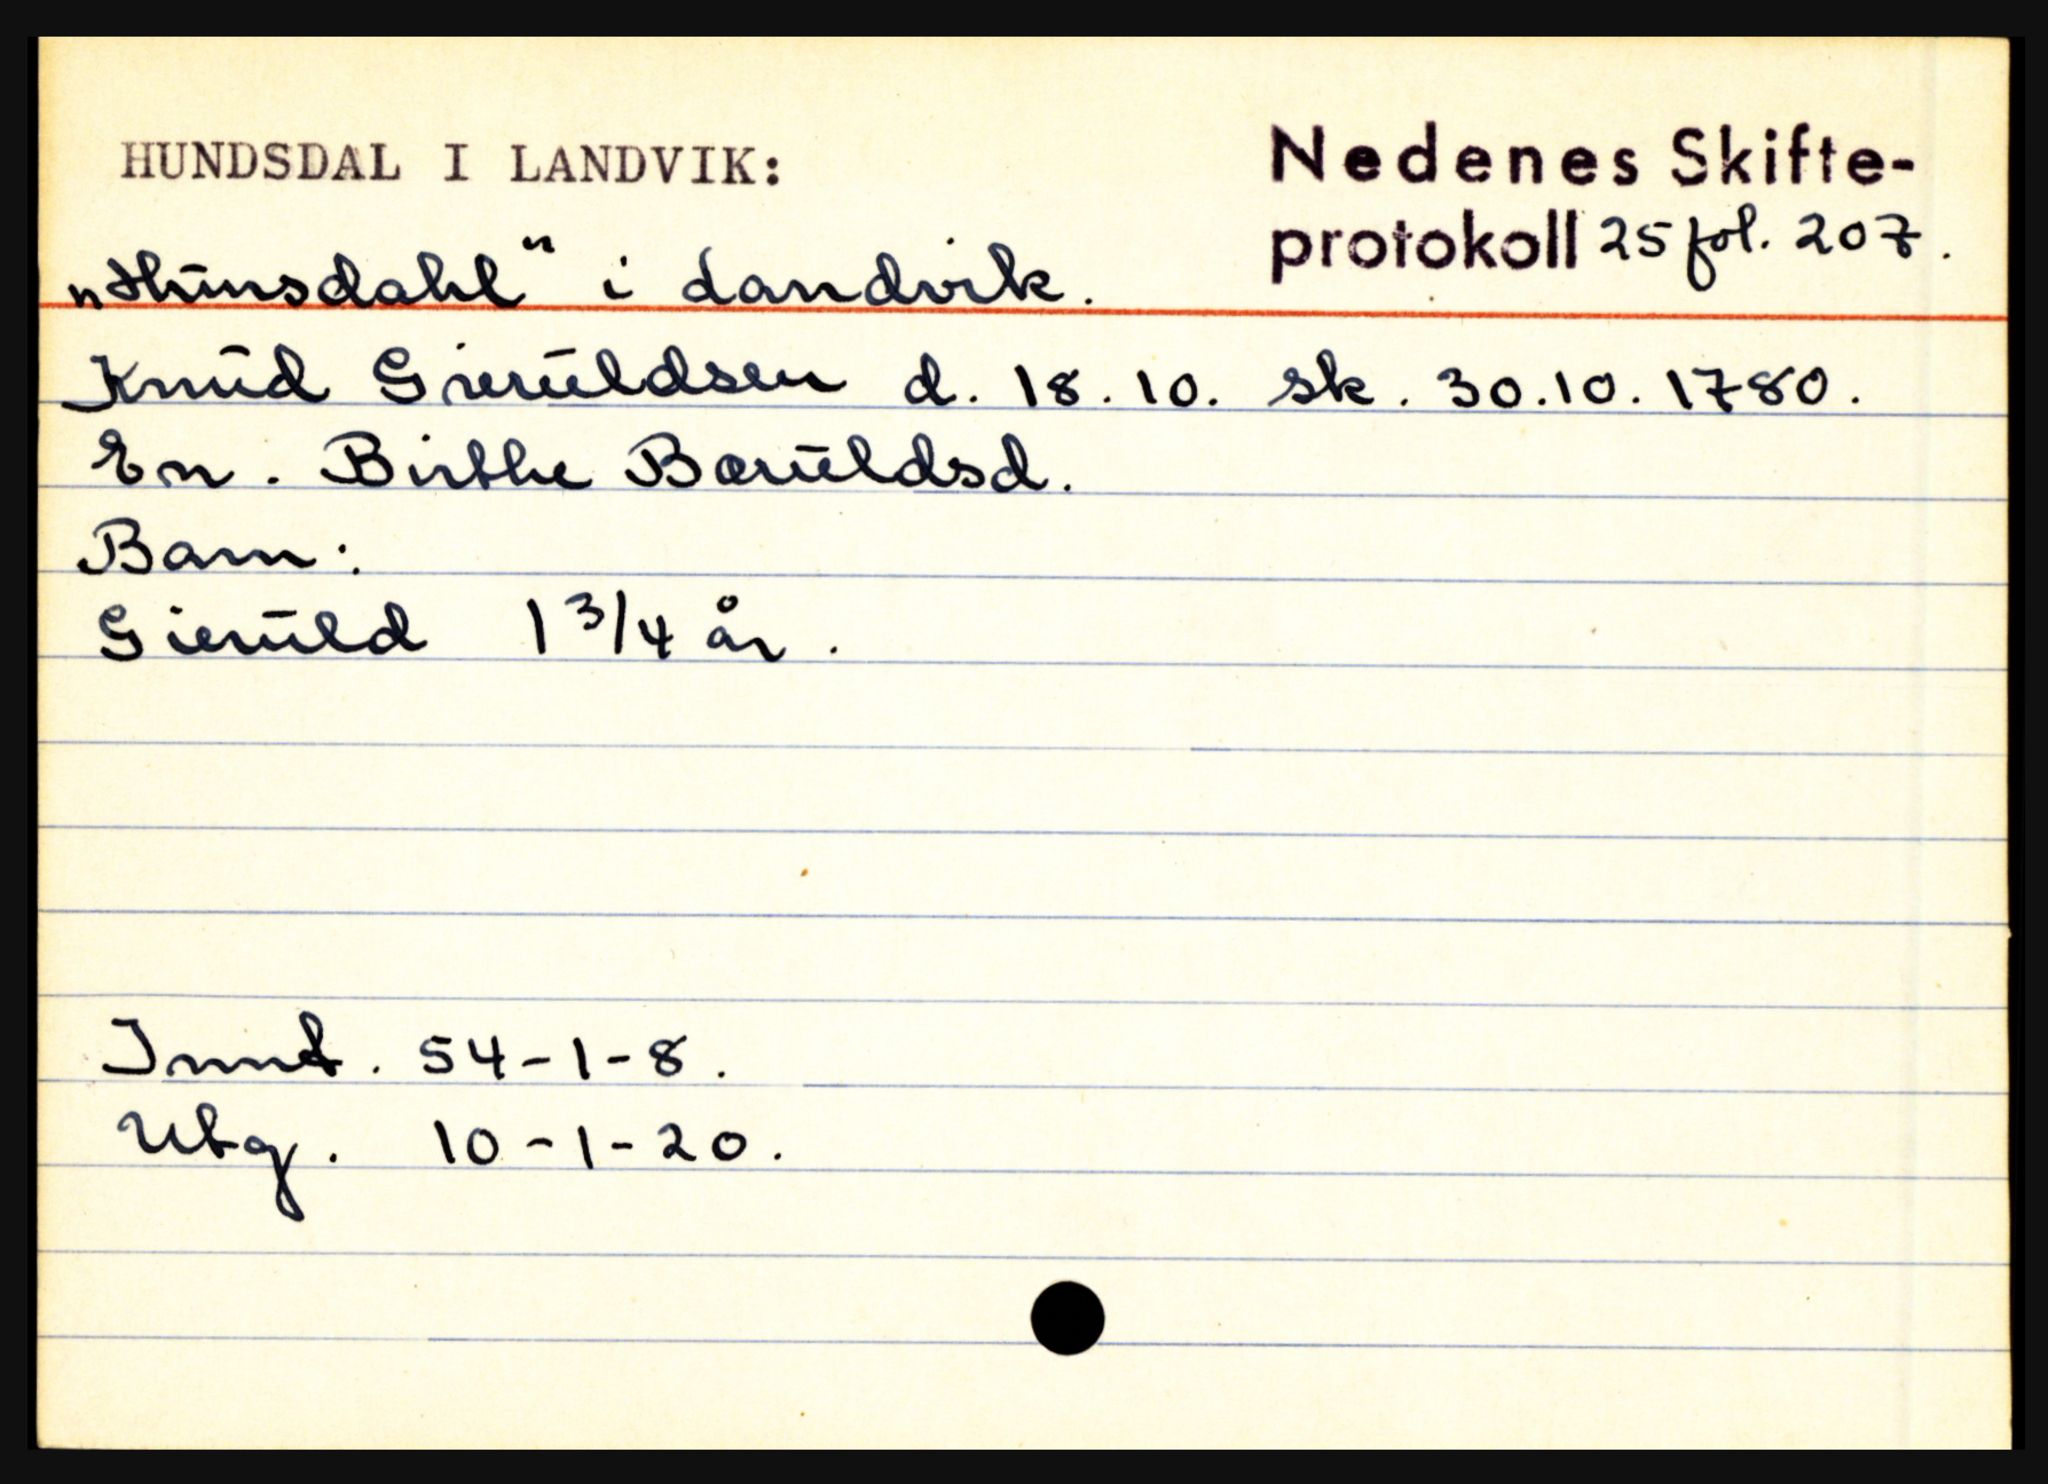 HUNDSDAL I LANDVIK:
Nedenes Skifte-
protokoll 25 fol. 207.
„Hunsdahl" i Landvik.
Knud Gieruldsen d. 18.10. sk. 30.10.1780.
En. Birthe Bæruldsd.
Barn:
Gieruld 1 3/4 år.
Innt. 54-1-8.
Utg. 10-1-20.